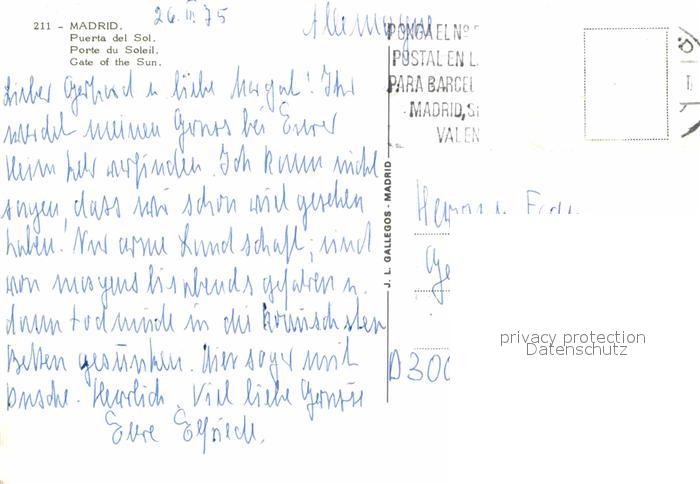 26. III. 75
Allemagne
211 - MADRID.
Puerta del Sol.
Porte du Soleil.
Gate of the Sun.
Lieber Gerhard u liebe Margot! Ihr
werdet meinen Gruss bei Eurer
Heimkehr vorfinden. Ich kann nicht
sagen, dass wir schon viel gesehen
haben! Nur arme Landschaft; sind
von morgens bis abends gefahren u.
dann todmüde in die komischsten
Betten gesunken. Hier sogar mit
Dusche. Herrlich. Viel liebe Grüsse
Eure
J. L. GALLEGOS - MADRID
PONGA EL Nº
POSTAL EN L
PARA BARCEL
MADRID, S
VALEN
D 300
privacy protection
Datenschutz